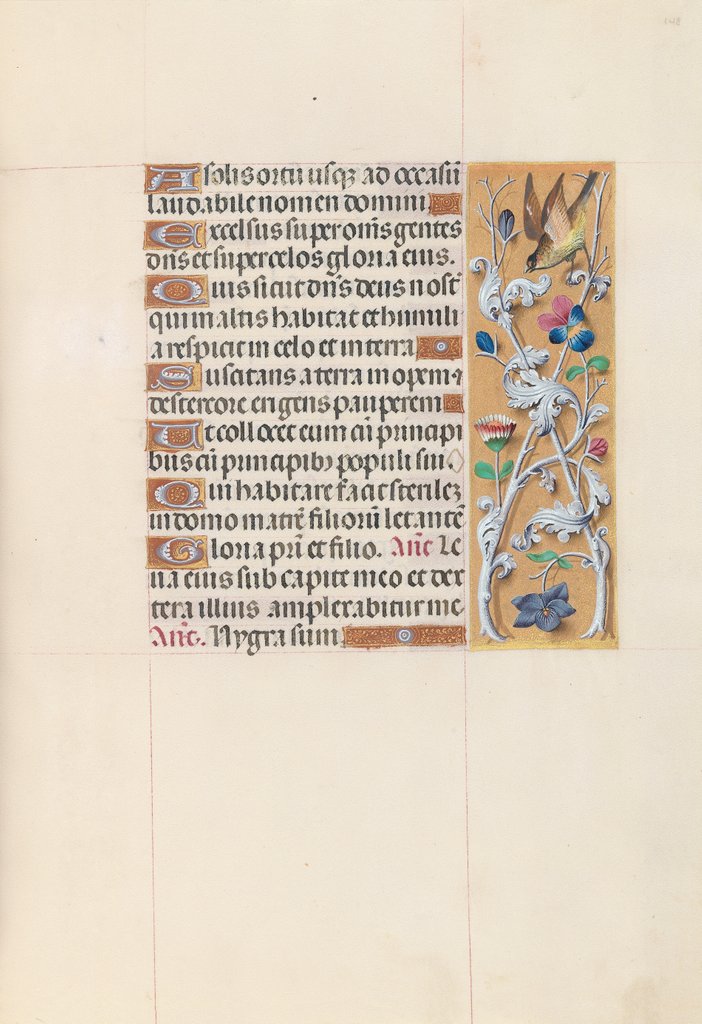 148
A solis ortu usqȝ ad occasū
laudabile nomen domini.
Excelsus super om̄s gentes
dn̄s et super celos gloria eius.
Quis sicut dn̄s deus nost͛
qui in altis habitat et humili
a respicit in celo et in terra
Suscitans a terra inopem ⁊
de stercore erigens pauperem
Ut collocet eum cū principi
bus cū principibȝ populi sui.
Qui habitare facit sterilēȝ
in domo matrē filiorū letantē
Gloria pr̄i et filio. Añt Le
ua eius sub capite meo et dex
tera illius amplexabitur me
Añt. Nygra sum